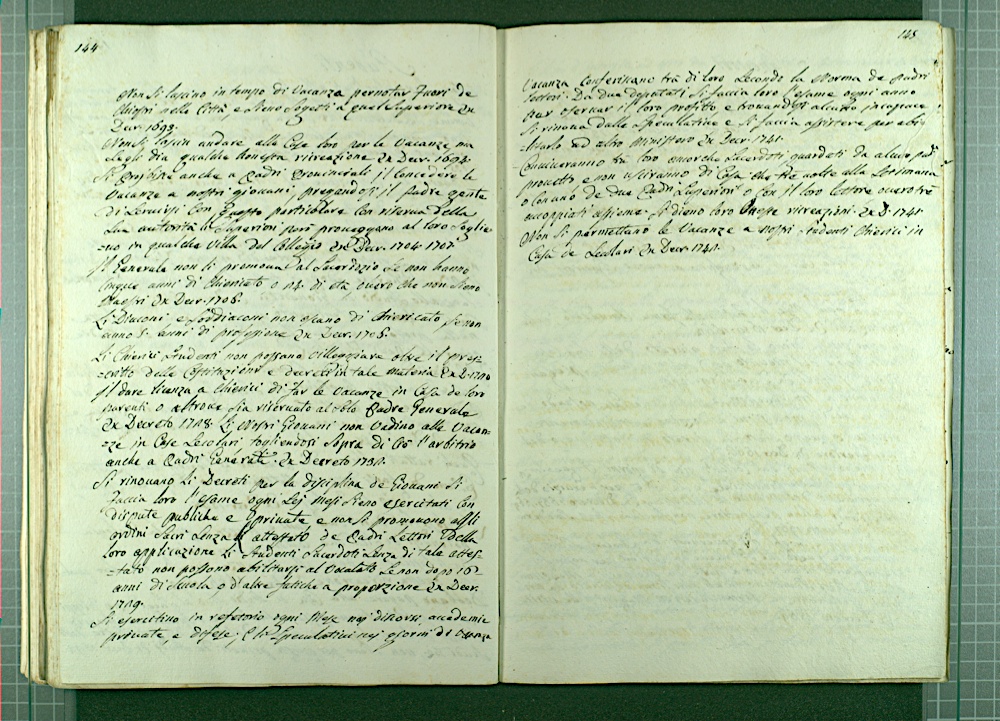 144
Non si lascino in tempo di Vacanza pernottar fuori de
Chiostri nelle Città, e sieno sogetti a quel Superiore Ex
Decr. 1693.
Non si lascin andare alle Case loro per le Vacanze ma
se gli dia qualche honesta ricreazione Ex Decr. 1694.
Si proibine anche a Padri Provinciali il concedere le
Vacanze a nostri giovani, pregandosi il Padre
di servirsi con questo particolare con riserva della
sua autorità li Superiori però proveggano al loro soglie-
-no in qualche Villa del Collegio Ex Decr. 1704. 1707.
Il Generale non si promova al Sacerdozio se non hanno
cinque anni di Chiericato o 24. di età overo che non sieno
Maestri Ex Decr. 1706.
Li Diaconi e Soddiaconi non escano di Chiericato se non
anno 5. anni di professione Ex Decr. 1705.
Li Chierici Studenti non possano villeggiare oltre il pres-
-critto delle Costituzioni e decreti in tale materia Ex D. 1710
Il dare licenza a Chierici di far le Vacanze in Casa de loro
parenti o altrove sia riservato al solo Padre Generale
Ex Decreto 1718. Li Nostri Giovani non vadino alle Vacan-
-ze in Case Secolari togliendosi sopra di ciò l'arbitrio
anche a Padri Generali. Ex Decreto 1731.
Si rinovano li Decreti per la disciplina de Giovani Si
faccia loro l'esame ogni sei mesi sieno esercitati con
dispute publiche e private e non si promovono agli
ordini Sacri senza l'attestato de Padri Lettori della
loro applicazione Li Studenti Sacerdoti senza di tale attes-
-tato non possano abilitarsi al Vocalato se non dopo 16
anni di scuola o d'altre fatiche a proporzione Ex Decr.
1719.
Si esercitino in refetorio ogni Mese nei discorsi, accademie
private, e difese; e li Speculativi nei giorni di Vacanza
145
Vacanza conferiscano trà di loro secondo la norma de Padri
Lettori. Da due deputati si faccia loro l'esame ogni anno
per osservar il loro profitto e trovandosi alcuno incapace
si rimova dalle speculative e si faccia assistere per abi-
-litarlo ad altro ministero Ex Decr. 1741.
Conviveranno trà loro ancorche Sacerdoti guardati da alcun pad
provetto e non usciranno di Casa che trè volte alla settimana
o con uno de due Padri Superiori o con il loro lettore overo trè
accoppiati assieme. Si dieno loro honeste ricreazioni. Ex D. 1741
Non si permettano le Vacanze a nostri Studenti Chierici in
Casa de Secolari Ex Decr. 1741.